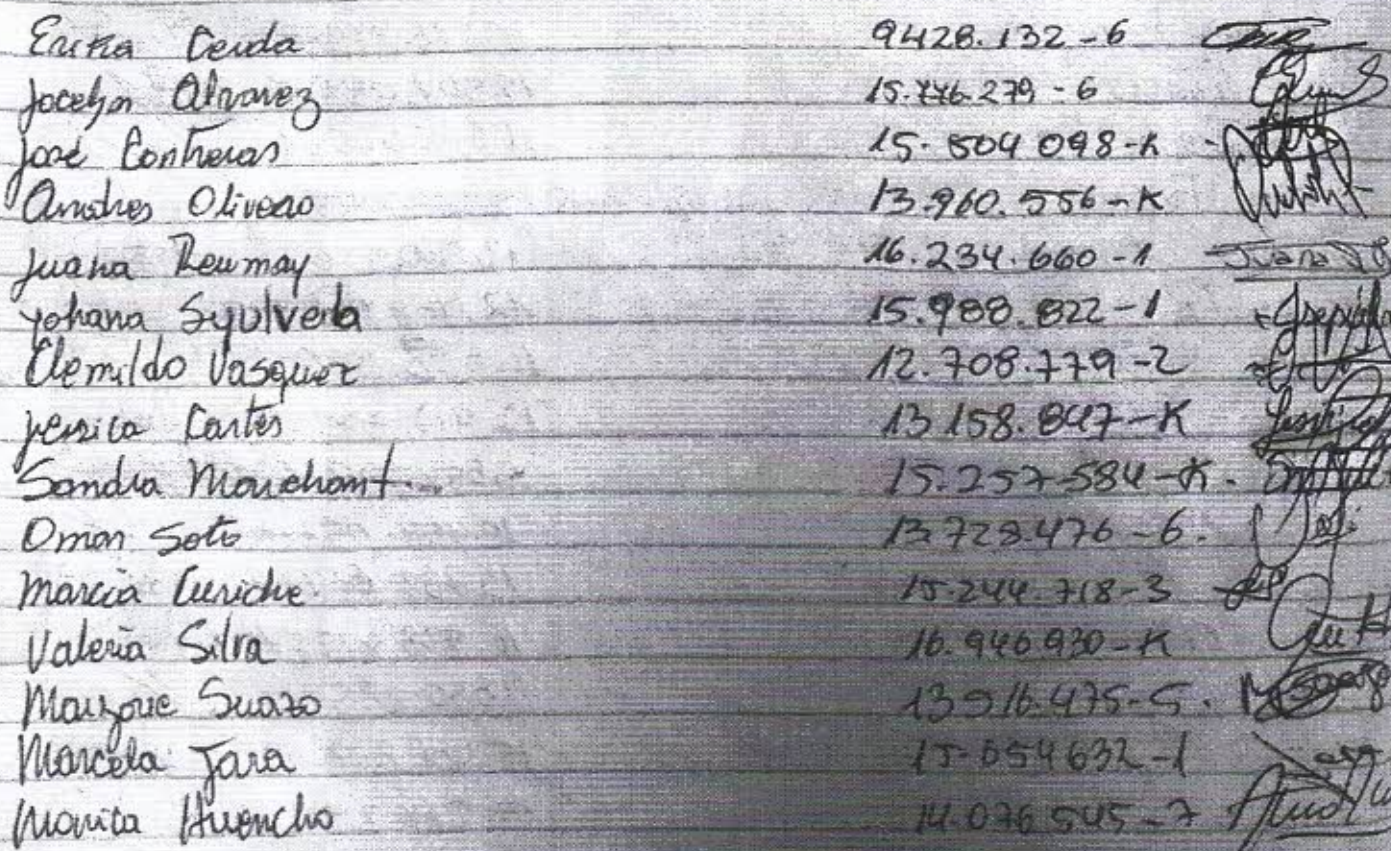 Erika Cerda 9428.132-6
Jocelyn Alvarez 15.776.279-6
José Contreras 15.504 098-K
Andres Olivero 13.960.556-K
Juana Reumay 16.234.660-1 Juana
Yohana Sepulveda 15.988.822-1
Clemildo Vasquez 12.708.779-2
Jessica Cartes 13 158.847-K
Sandra Marchant 15.257-584-K.
Omar Soto 13.728.476-6.
Marcia Curiche 15.244.718-3
Valeria Silva 16.946 930-K
Marjorie Suazo 13 916.475-5.
Marcela Jara 15-054632-1
Monica Huencho 14.076 545-7